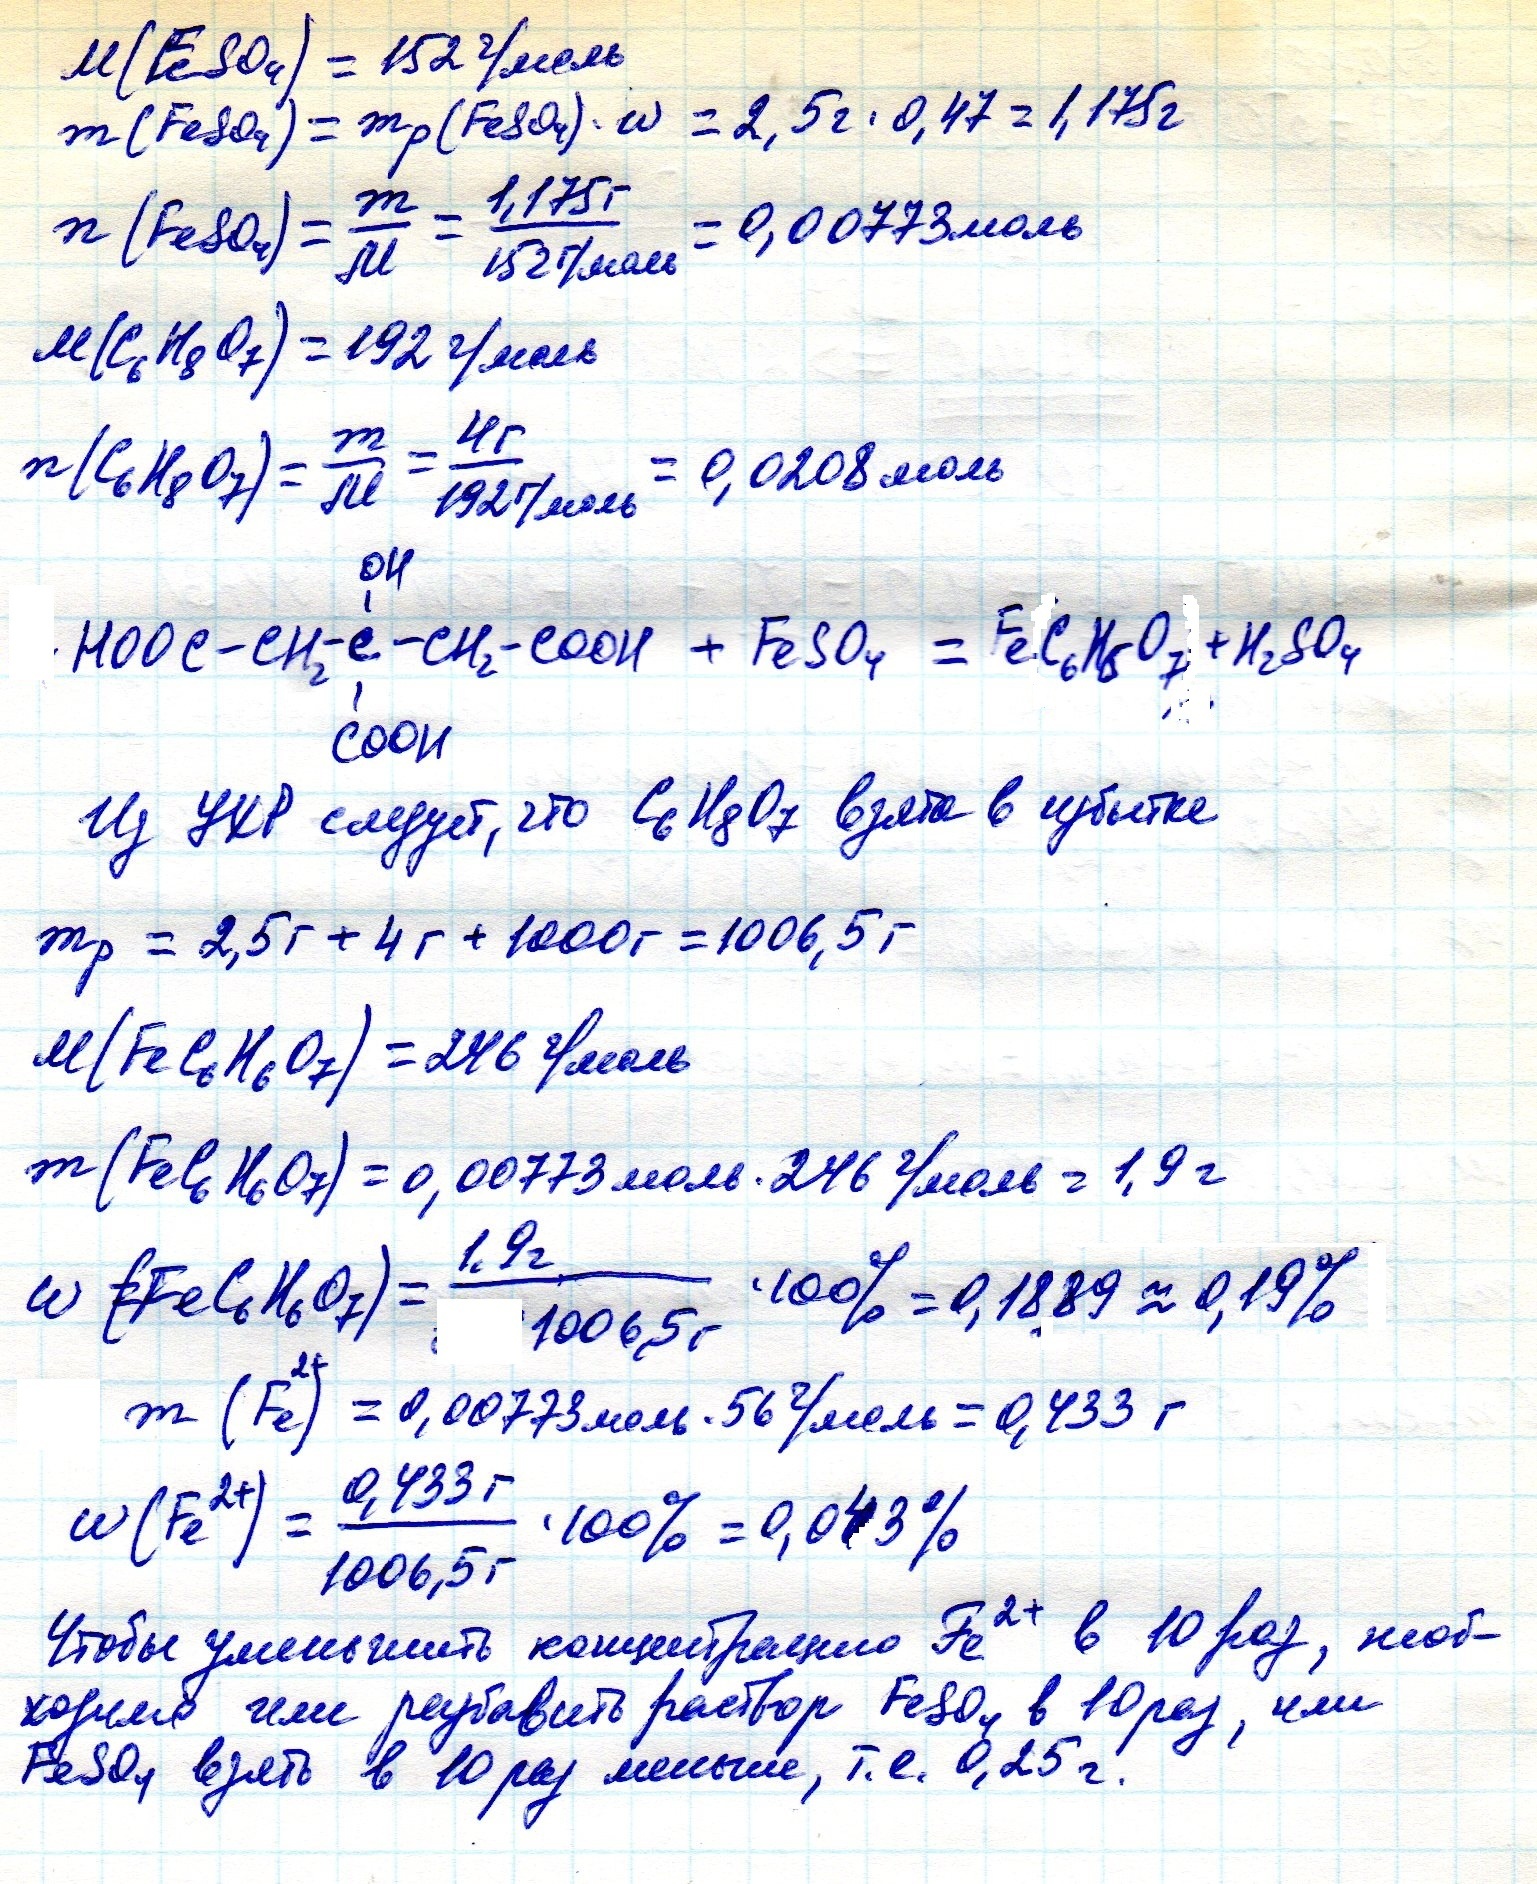 M(FeSO₄) = 152 г/моль
m(FeSO₄) = mр(FeSO₄)·w = 2,5г · 0,47 = 1,175г
n(FeSO₄) = m/M = 1,175г/152г/моль = 0,00773моль
M(C₆H₈O₇) = 192 г/моль
n(C₆H₈O₇) = m/M = 4г/192г/моль = 0,0208моль
OH
HOOC-CH₂-C-CH₂-COOH + FeSO₄ = FeC₆H₅O₇ + H₂SO₄
COOH
Из УХР следует, что C₆H₈O₇ взята в избытке
mр = 2,5г + 4г + 1000г = 1006,5г
M(FeC₆H₆O₇) = 246 г/моль
m(FeC₆H₆O₇) = 0,00773моль · 246 г/моль = 1,9г
w(FeC₆H₆O₇) = 1,9г/1006,5г · 100% = 0,1889 ≈ 0,19%
m(Fe²⁺) = 0,00773моль · 56 г/моль = 0,433 г
w(Fe²⁺) = 0,433г/1006,5г · 100% = 0,043%
Чтобы уменьшить концентрацию Fe²⁺ в 10 раз, необ-
ходимо или разбавить раствор FeSO₄ в 10 раз, или
FeSO₄ взять в 10 раз меньше, т.е. 0,25г.